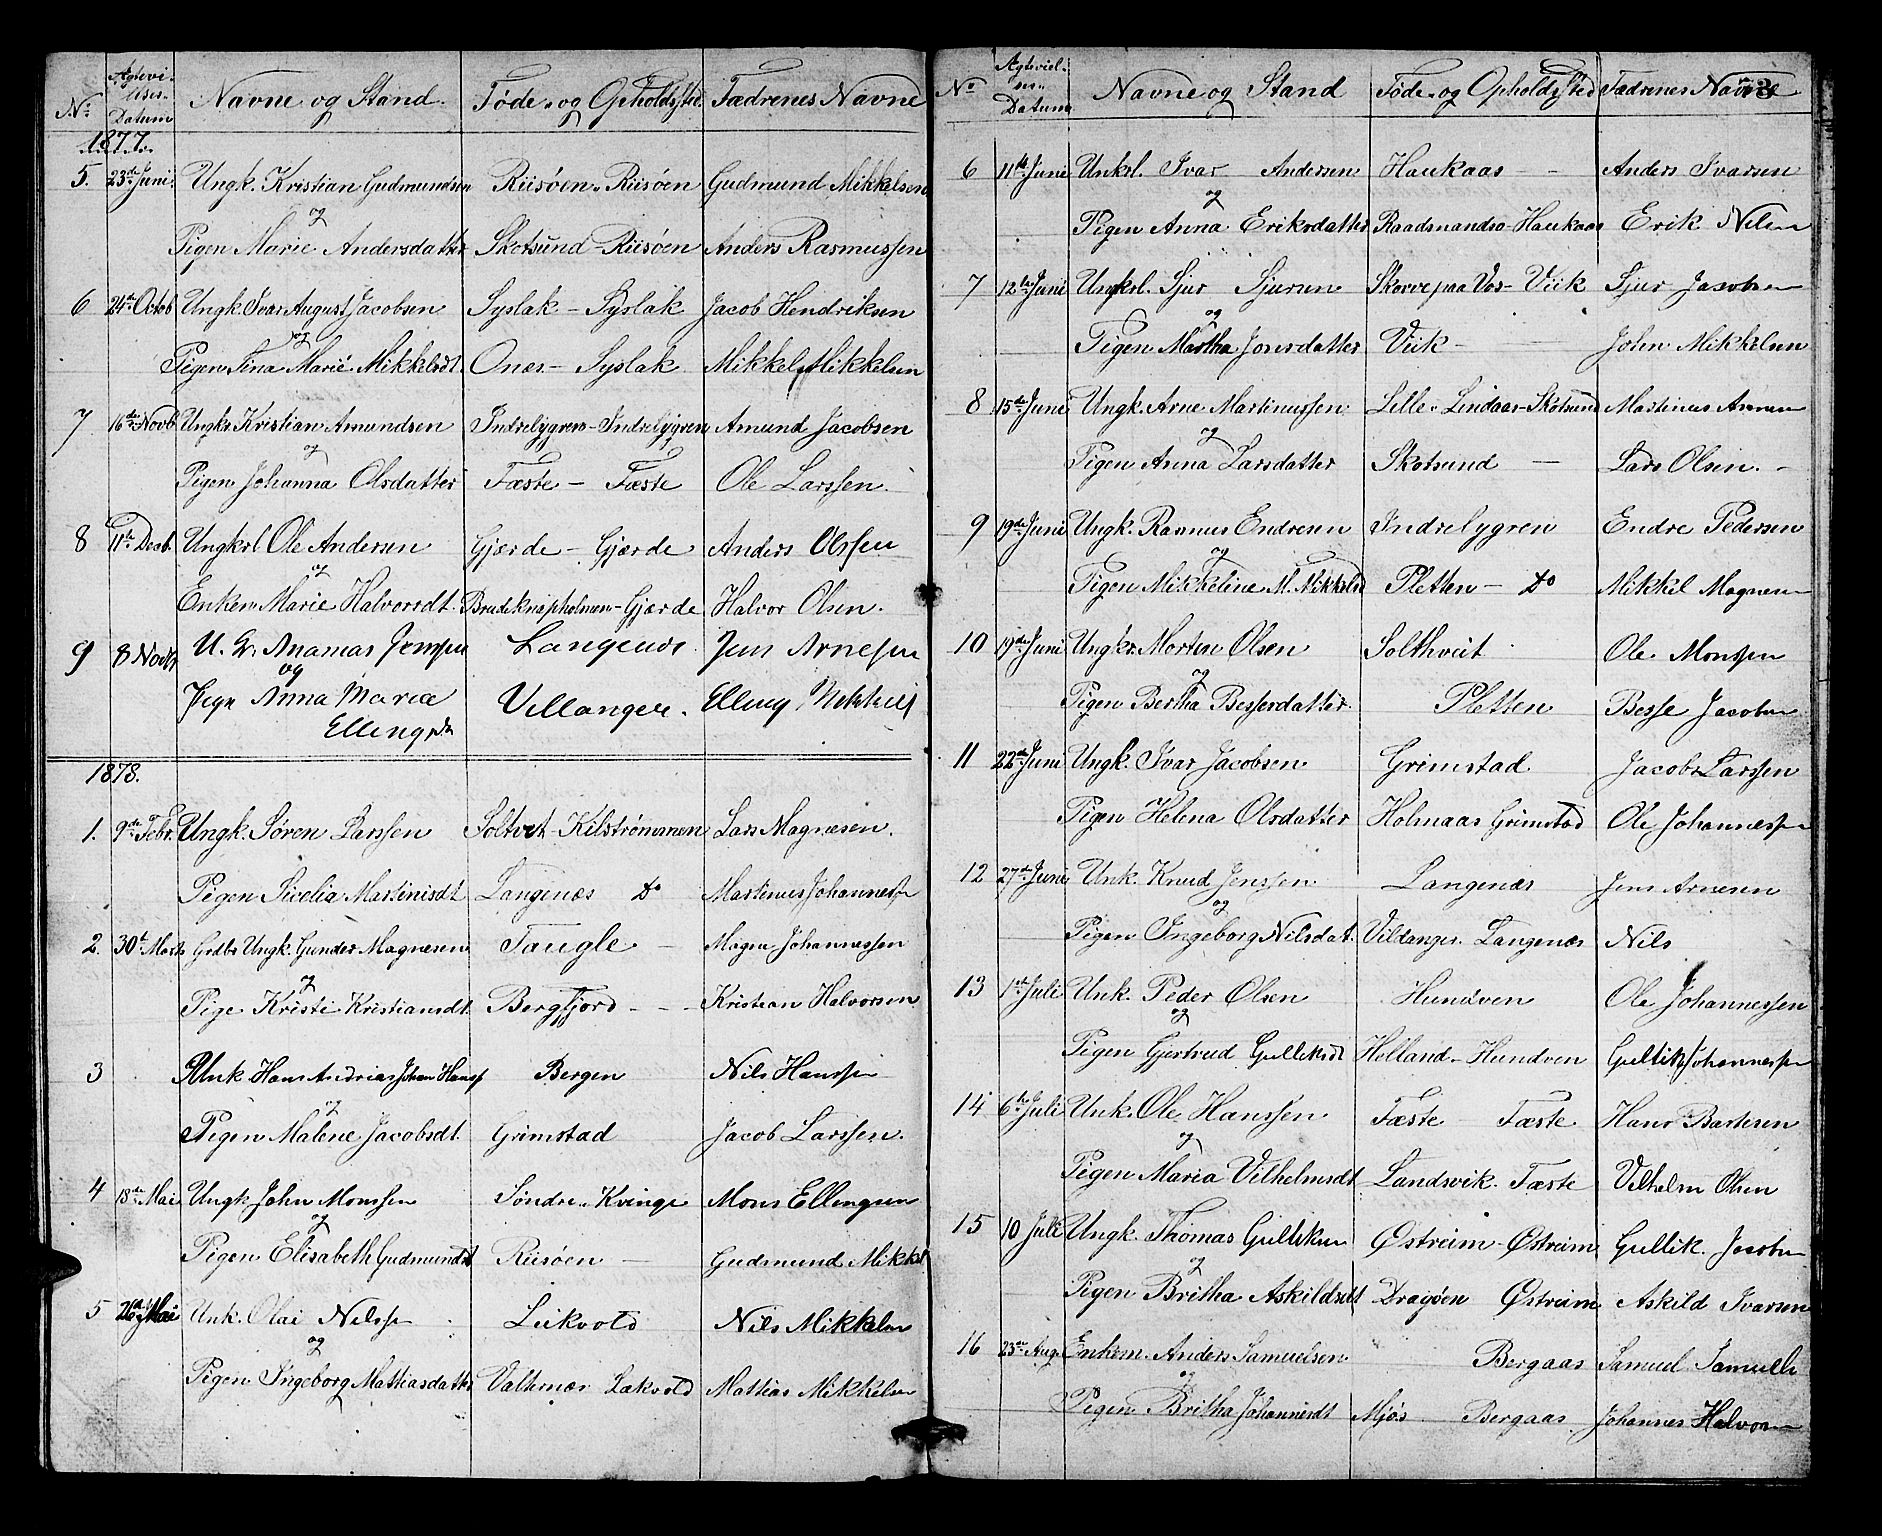 No Ægtevi- Navne og Stand. Føde- og Opholdssted Fædrenes Navne
elses-
Datum
1877.
5. 23de Juni. Ungk. Kristian Gudmundsen Riisøen - Riisøen Gudmund Mikkelsen
og
Pigen Marie Andersdatter Skotsund - Riisøen Anders Rasmussen
6 24de Octob Ungk. Ivar August Jacobsen Syslak - Syslak Jacob Hendriksen
og
Pigen Sina Marie Mikkelsdt. Onæs - Syslak Mikkel Mikkelsen
7. 16de Novb Ungkr Kristian Amundsen Indrelygren - Indrelygren Amund Jacobsen
og
Pigen Johanna Olsdatter Fæste - Fæste Ole Larssen.
8 11te Decb. Ungkrl Ole Andersen Gjærde - Gjærde Anders Olssen
og
Enken Marie Halvorsdt. Brudeknapholmen - Gjærde Halvor Olsen.
9 8 Novbr U. K. Ananias Jenssen Langenæs Jens Arnesen
og
Pigen Anna Maria Villanger. Elling
Ellingsdt
1878.
1. 9de Febr. Ungk. Søren Larssen Soltvet - Kilstrømmen Lars Magnesen.
Pigen Sicelia Martinisdt Langenæs Do Martinus Johannessen
2. 30te Marts Grdbr Ungk. Gunder Magnesen Taugle - Magne Johannessen
og
Pige Kristi Kristiansdt. Bergfjord - - - Kristian Halvorsen
3 Unk Hans Andrias Johan Hanss Bergen Nils Hanssen
og
Pigen Malene Jacobsdt. Grimstad Jacob Larssen.
4 18de Mai Ungk John Monssen Søndre - Kvinge Mons Ellingsen
og
Pigen Elisabeth Gudmundsdt Riisøen - Gudmund Mikkel
5 26de Mai Unk. Olai Nilssen Leikvold Nils Mikkelsen
og
Pigen Ingeborg Mattiasdatter Valternær Lækvold Mattias Mikkelsen
No Ægteviel- Navne og Stand Føde- og Opholdssted Fædrenes Navne 3
ses-
Datum
6 11te Juni Unkrl. Ivar Andersen Haukaas - - Anders Ivarsen
og
Pigen Anna Eriksdatter Raadmandso - Haukaas Erik Nilsen
7 12te Juni Ungkrl. Sjur Sjursen Skorve paa Vos - Viik Sjur Jacobsen
og
Pigen Martha Jonsdatter Viik - John Mikkelsen
8 15de Juni Ungk. Arne Martinussen Lille - Lindaas - Skotsund Martinus Arnesen
og
Pigen Anna Larsdatter Skotsund - Lars Olsen. -
9 19de Juni Ungk. Rasmus Endresen Indrelygren Endre Pedersen
og
Pigen Mikkeline M. Mikkelsd Pletten - Do Mikkel Magnesen
10 19de Juni Ungkr. Morten Olsen Solthveit Ole Monssen
og
Pigen Bertha Bessersdatter. Pletten Besse Jacobsen
11 22de Juni Ungk. Ivar Jacobsen Grimstad Jacob Larssen
Pigen Helena Olsdatter Holmaas Grimstad Ole Johannessen
12 27de Juni Unk. Knud Jenssen Langenæs Jens Arnesen
og
Pigen Ingeborg Nilsdat. Vildanger. Langenæs Nils
13 1ste Juli Unk. Peder Olsen Hundven Ole Johannessen
og
Pigen Gjertrud Gulliksdt Helland - Hundven Gullik Johannessen
14 6te Juli Unk. Ole Hanssen Fæste Fæste Hans Bartesen
og
Pigen Maria Vilhelmsdt Landsvik. Fæste Vilhelm Olsen
15 10 Juli Ungk. Thomas Gulliksen Østreim - Østreim Gullik. Jacobsen
og
Pigen Britha Askildsdt Dragøen Østreim Askild Ivarsen
16 23de Aug. Enkem. Anders Samuelsen Bergaas Samuel Samuels
og
Pigen Britha Johannesdt Mjøs Bergaas Johannes Halvorsen